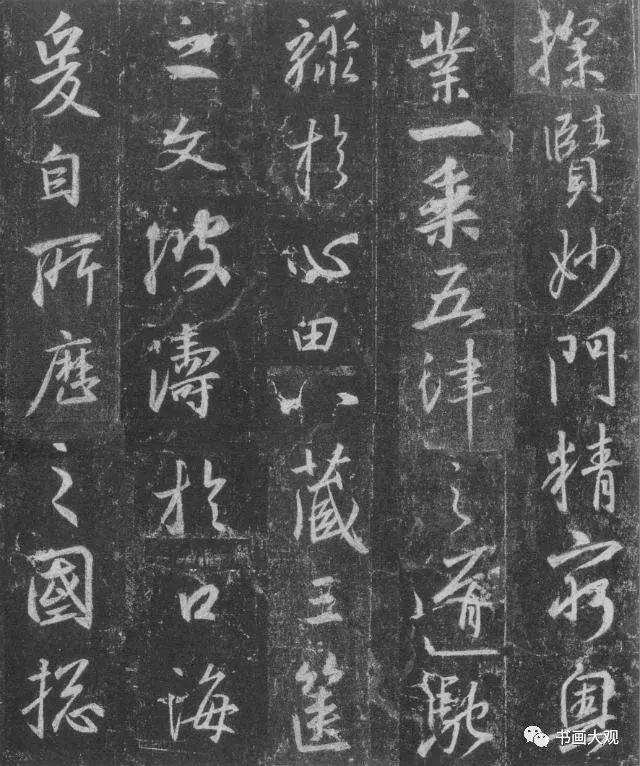 探賢妙門精窮奧
業一乘五津之道馳
驟於心田八藏三篋
之文波濤於口海
爰自所歷之國揔
书画大观